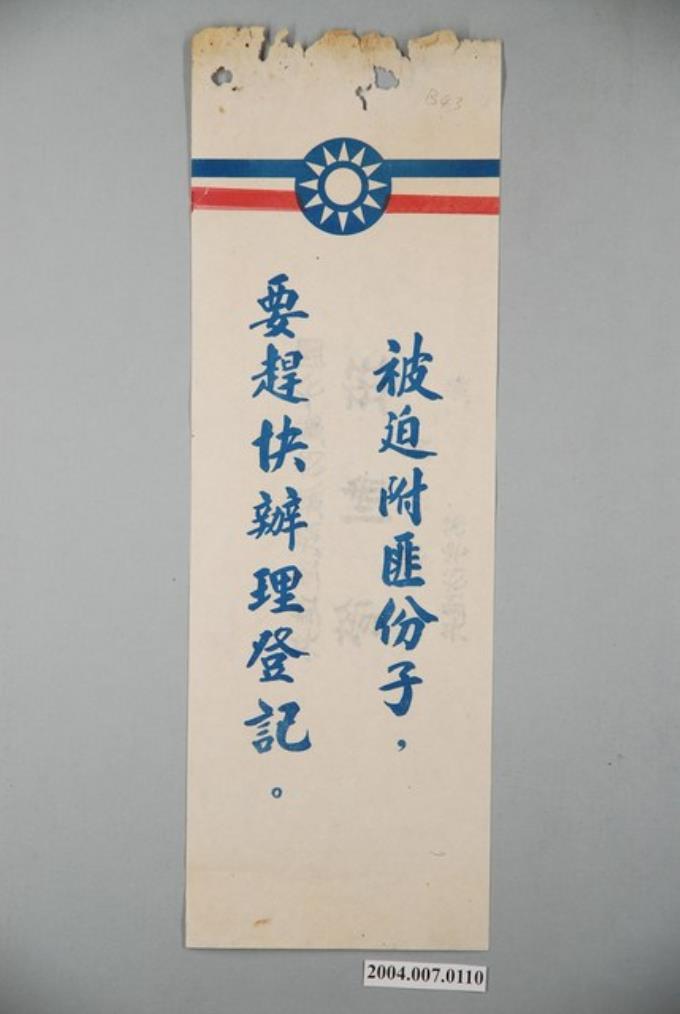 被迫附匪份子，
要趕快辦理登記。
B43
2004.007.0110